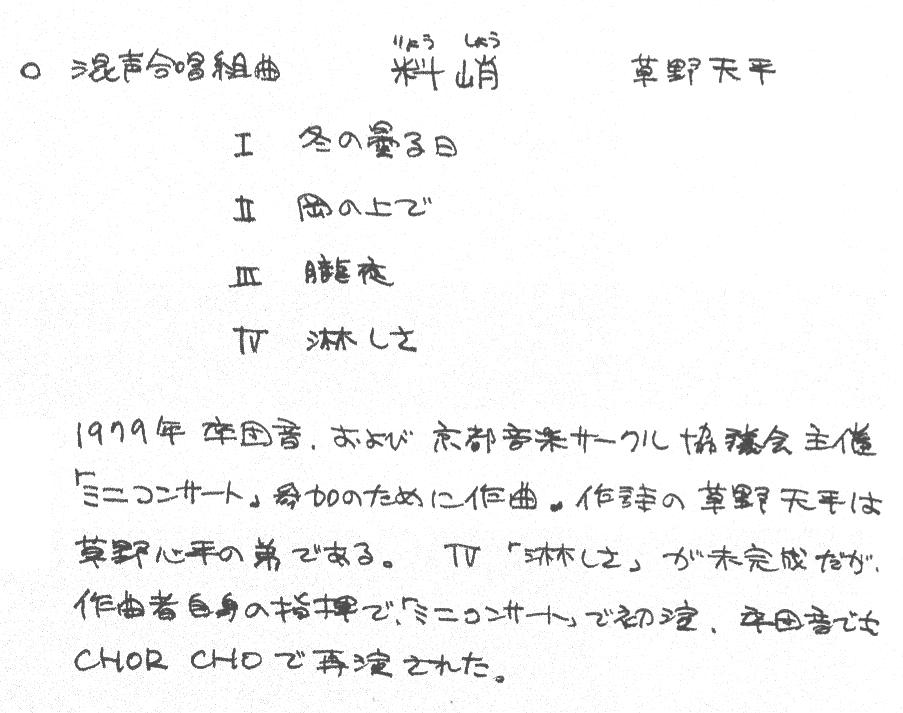 りょう しょう
○ 混声合唱組曲 料峭 草野天平
Ⅰ 冬の曇る日
Ⅱ 岡の上で
Ⅲ 朧夜
Ⅳ 淋しさ
1979年 卒団音、および 京都音楽サークル協議会主催
「ミニコンサート」参加のために作曲。作詩の草野天平は
草野心平の弟である。 Ⅳ 「淋しさ」が未完成だが、
作曲者自身の指揮で、「ミニコンサート」で初演、卒団音でも
CHOR CHOで再演された。